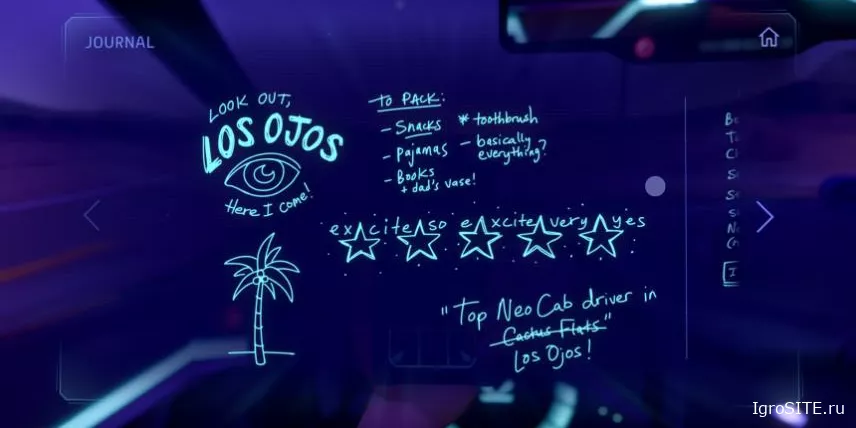 JOURNAL
LOOK OUT,
LOS OJOS
Here I come!
TO PACK:
- Snacks
- Pajamas
- Books
+ dad's vase!
* toothbrush
- basically
everything?
excite so excite very yes
"Top Neo Cab driver in
Cactus Flats"
Los Ojos!
IgroSITE.ru